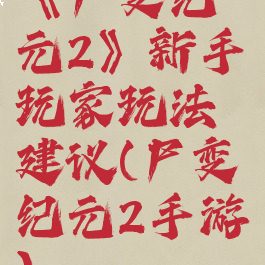 《尸变纪
元2》新手
玩家玩法
建议(尸变
纪元2手游
)